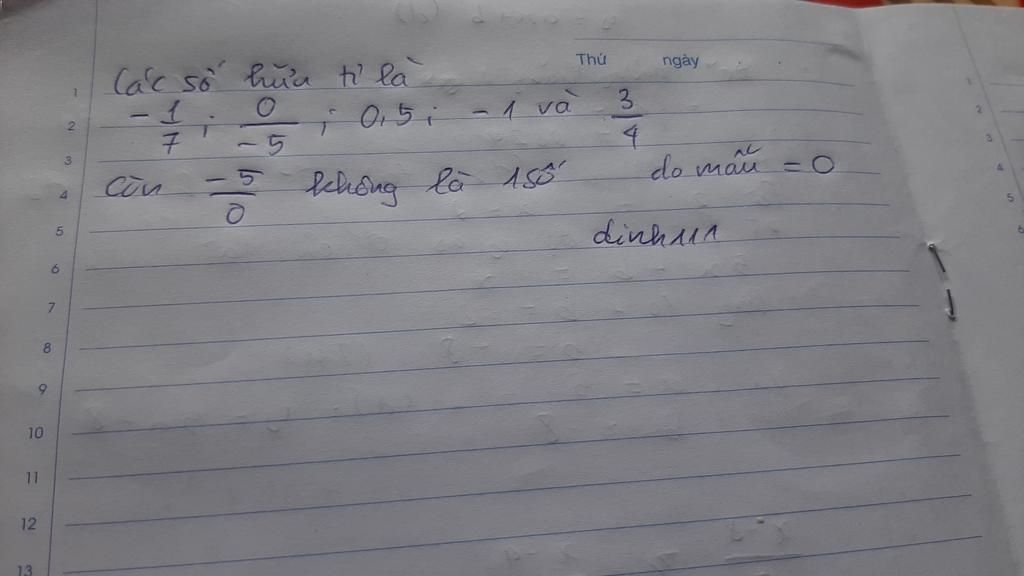 Thứ ngày
Các số hữu tỉ là
-1/7 ; 0/-5 ; 0,5 ; -1 và 3/4
Còn -5/0 không là 1 số do mẫu = 0
dinh111
1
2
3
4
5
6
7
8
9
10
11
12
13
1
2
3
4
5
6